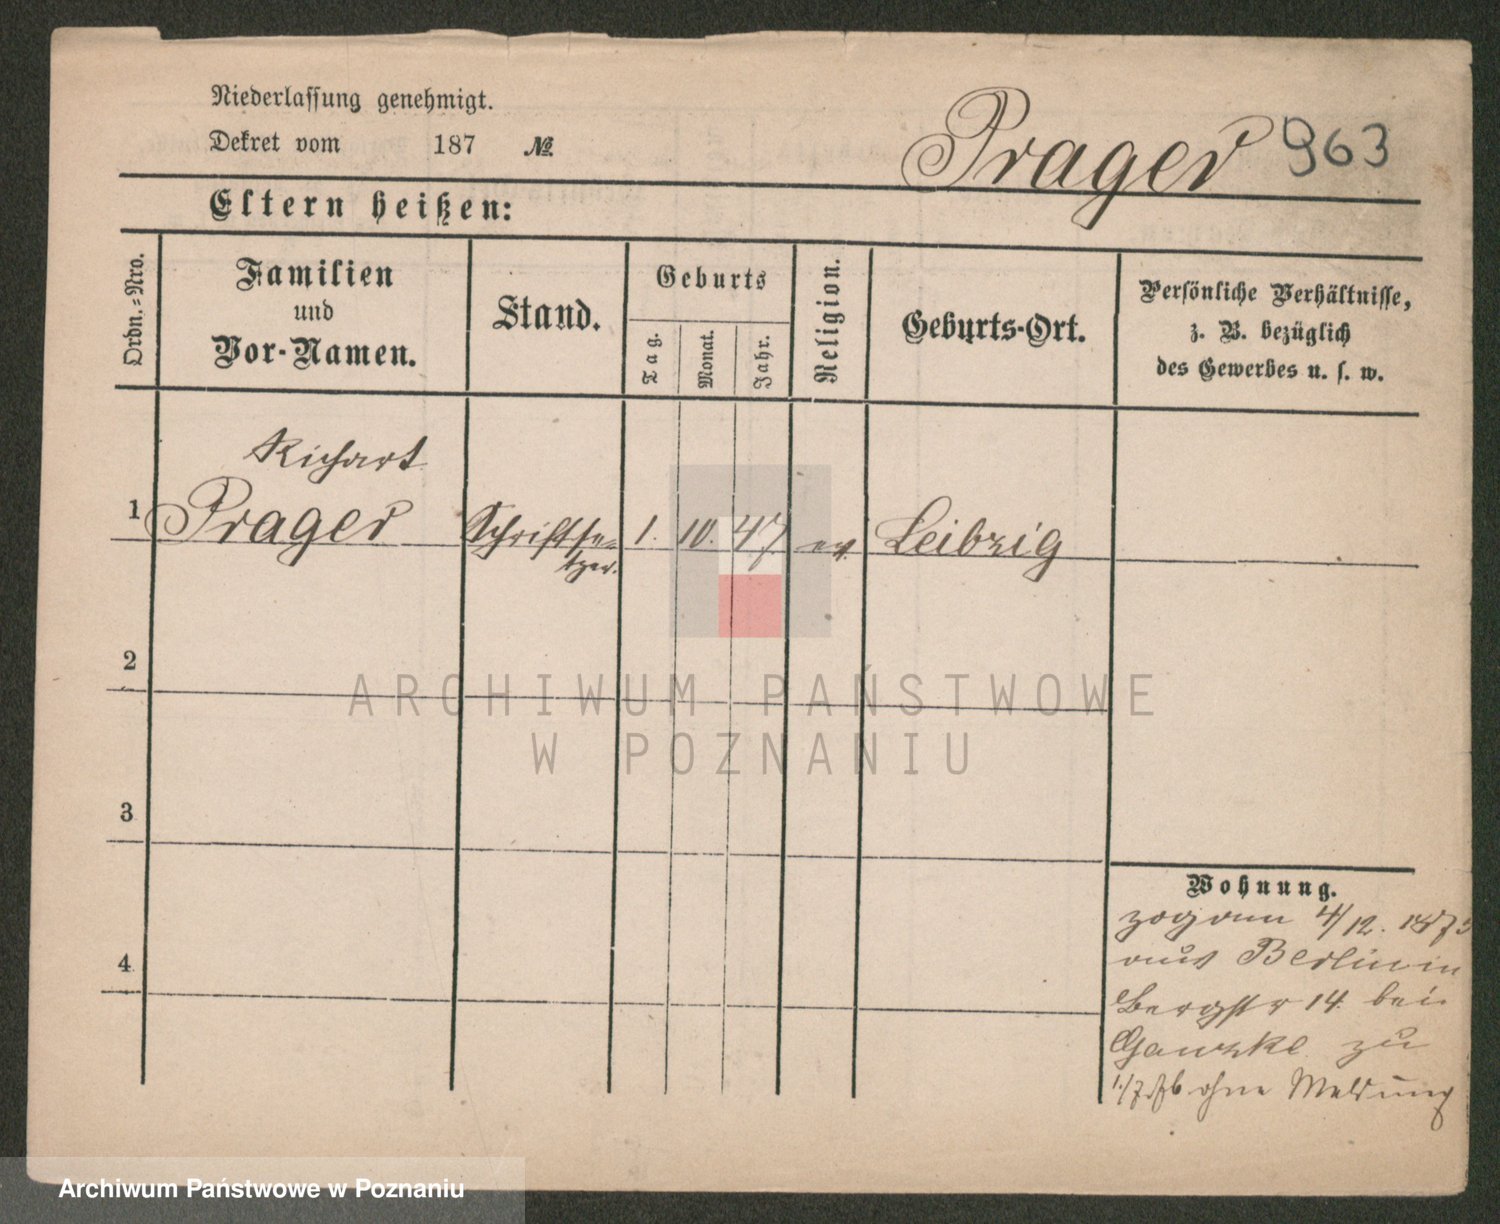 Niederlassung genehmigt.
Dekret vom 187 №
Prager 963
Eltern heißen:
Ordn.-Nro.
Familien
und
Vor-Namen.
Stand.
Geburts
Tag.
Monat.
Jahr.
Religion.
Geburts-Ort.
Persönliche Verhältnisse,
z. B. bezüglich
des Gewerbes u. s. w.
Richart
1 Prager Schriftse= 1. 10. 47. ev. Leibzig
tzer.
2
ARCHIWUM PAŃSTWOWE
W POZNANIU
3
Wohnung.
zog am 4/12. 1875
aus Berlin in
4
Bergstr 14. bei
zu
ohne Meldung
Archiwum Państwowe w Poznaniu